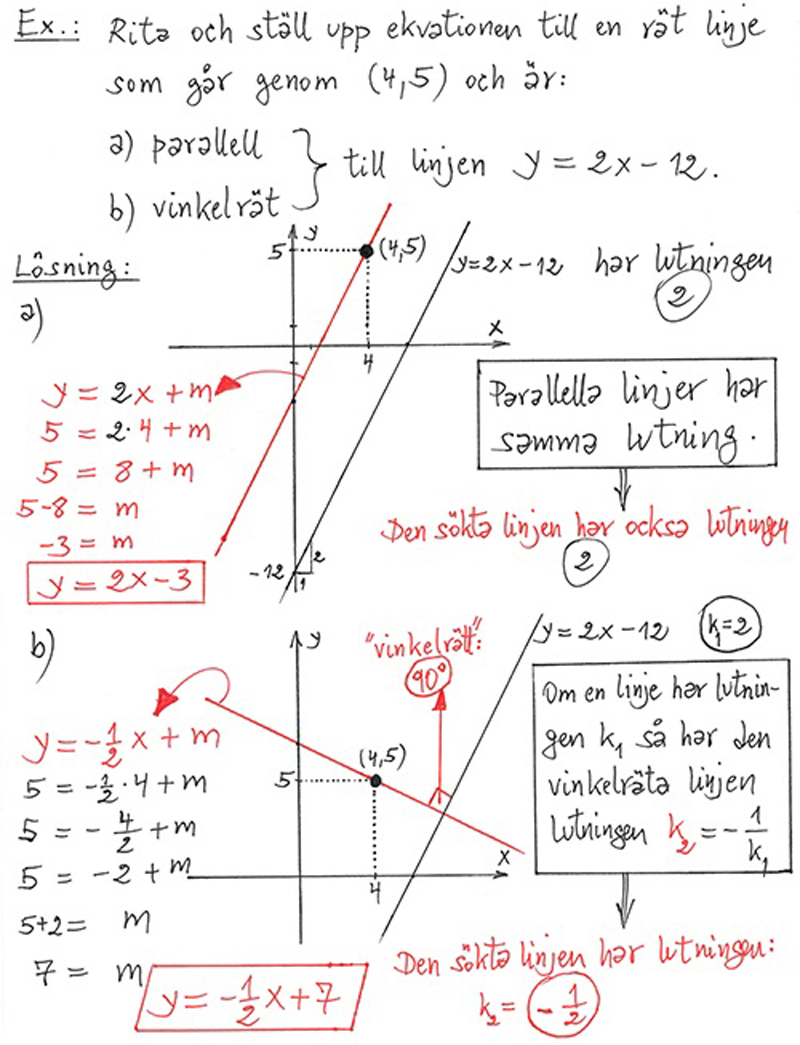 Ex.: Rita och ställ upp ekvationen till en rät linje
som går genom (4,5) och är:
a) parallell
b) vinkelrät
till linjen y = 2x - 12.
Lösning:
a)
y
5
(4,5)
x
4
-12
1
2
y=2x-12 har lutningen
2
y = 2x + m
5 = 2·4 + m
5 = 8 + m
5-8 = m
-3 = m
y = 2x - 3
Parallella linjer har
samma lutning.
Den sökta linjen har också lutningen
2
b)
y
"vinkelrätt":
90°
y = 2x - 12
k₁=2
(4,5)
5
x
4
y = -1/2 x + m
5 = -1/2 · 4 + m
5 = - 4/2 + m
5 = -2 + m
5+2 = m
7 = m
y = -1/2 x + 7
Om en linje har lutnin-
gen k₁ så har den
vinkelräta linjen
lutningen k₂ = - 1/k₁
Den sökta linjen har lutningen:
k₂ = - 1/2